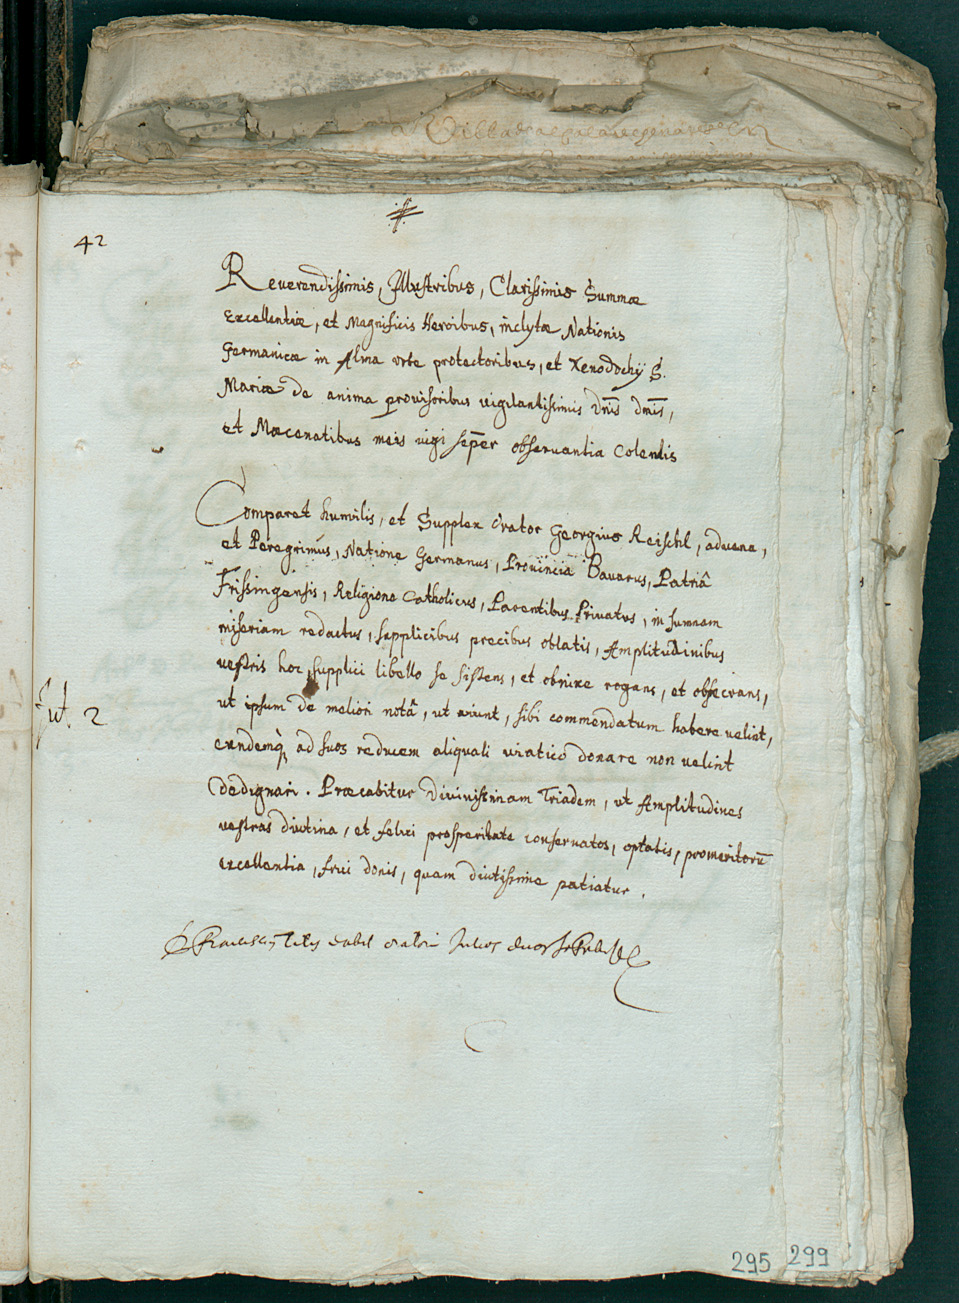 42
Reverendissimis, Illustribus, Clarissimis Summæ
Excellentiæ, et Magnificis Heroibus, inclytæ Nationis
Germanicæ in Alma vrbe protectoribus, et Xenodochij S.
Mariæ de anima provisoribus vigilantissimis Dnis dnis,
et Mœcenatibus meis vigi sēper observantia Colendis
Comparet humilis, et Supplex Orator Georgius Reischl, advena,
et Peregrinus, Natione Germanus, Provincia Bavarus, Patriâ
Frissingensis, Religione Catholicus, Parentibus Privatus, in sumam
miseriam redactus, supplicibus precibus oblatis, Amplitudinibus
vestris hoc supplici libello se sistens, et obnixe rogans, et obsecrans,
ut ipsum de meliori notâ, ut aiunt, sibi commendatum habere velint,
eundemq; ad suos reducem aliquali viatico donare non velint
dedignari. Præcabitur divinissimam Triadem, ut Amplitudines
vestras diutina, et felici prosperitate conservatos, optatis, promeritorū
excellentia, frui donis, quam diutissime patiatur.
Jul. 2
dabit oratori Julios duos
295 299